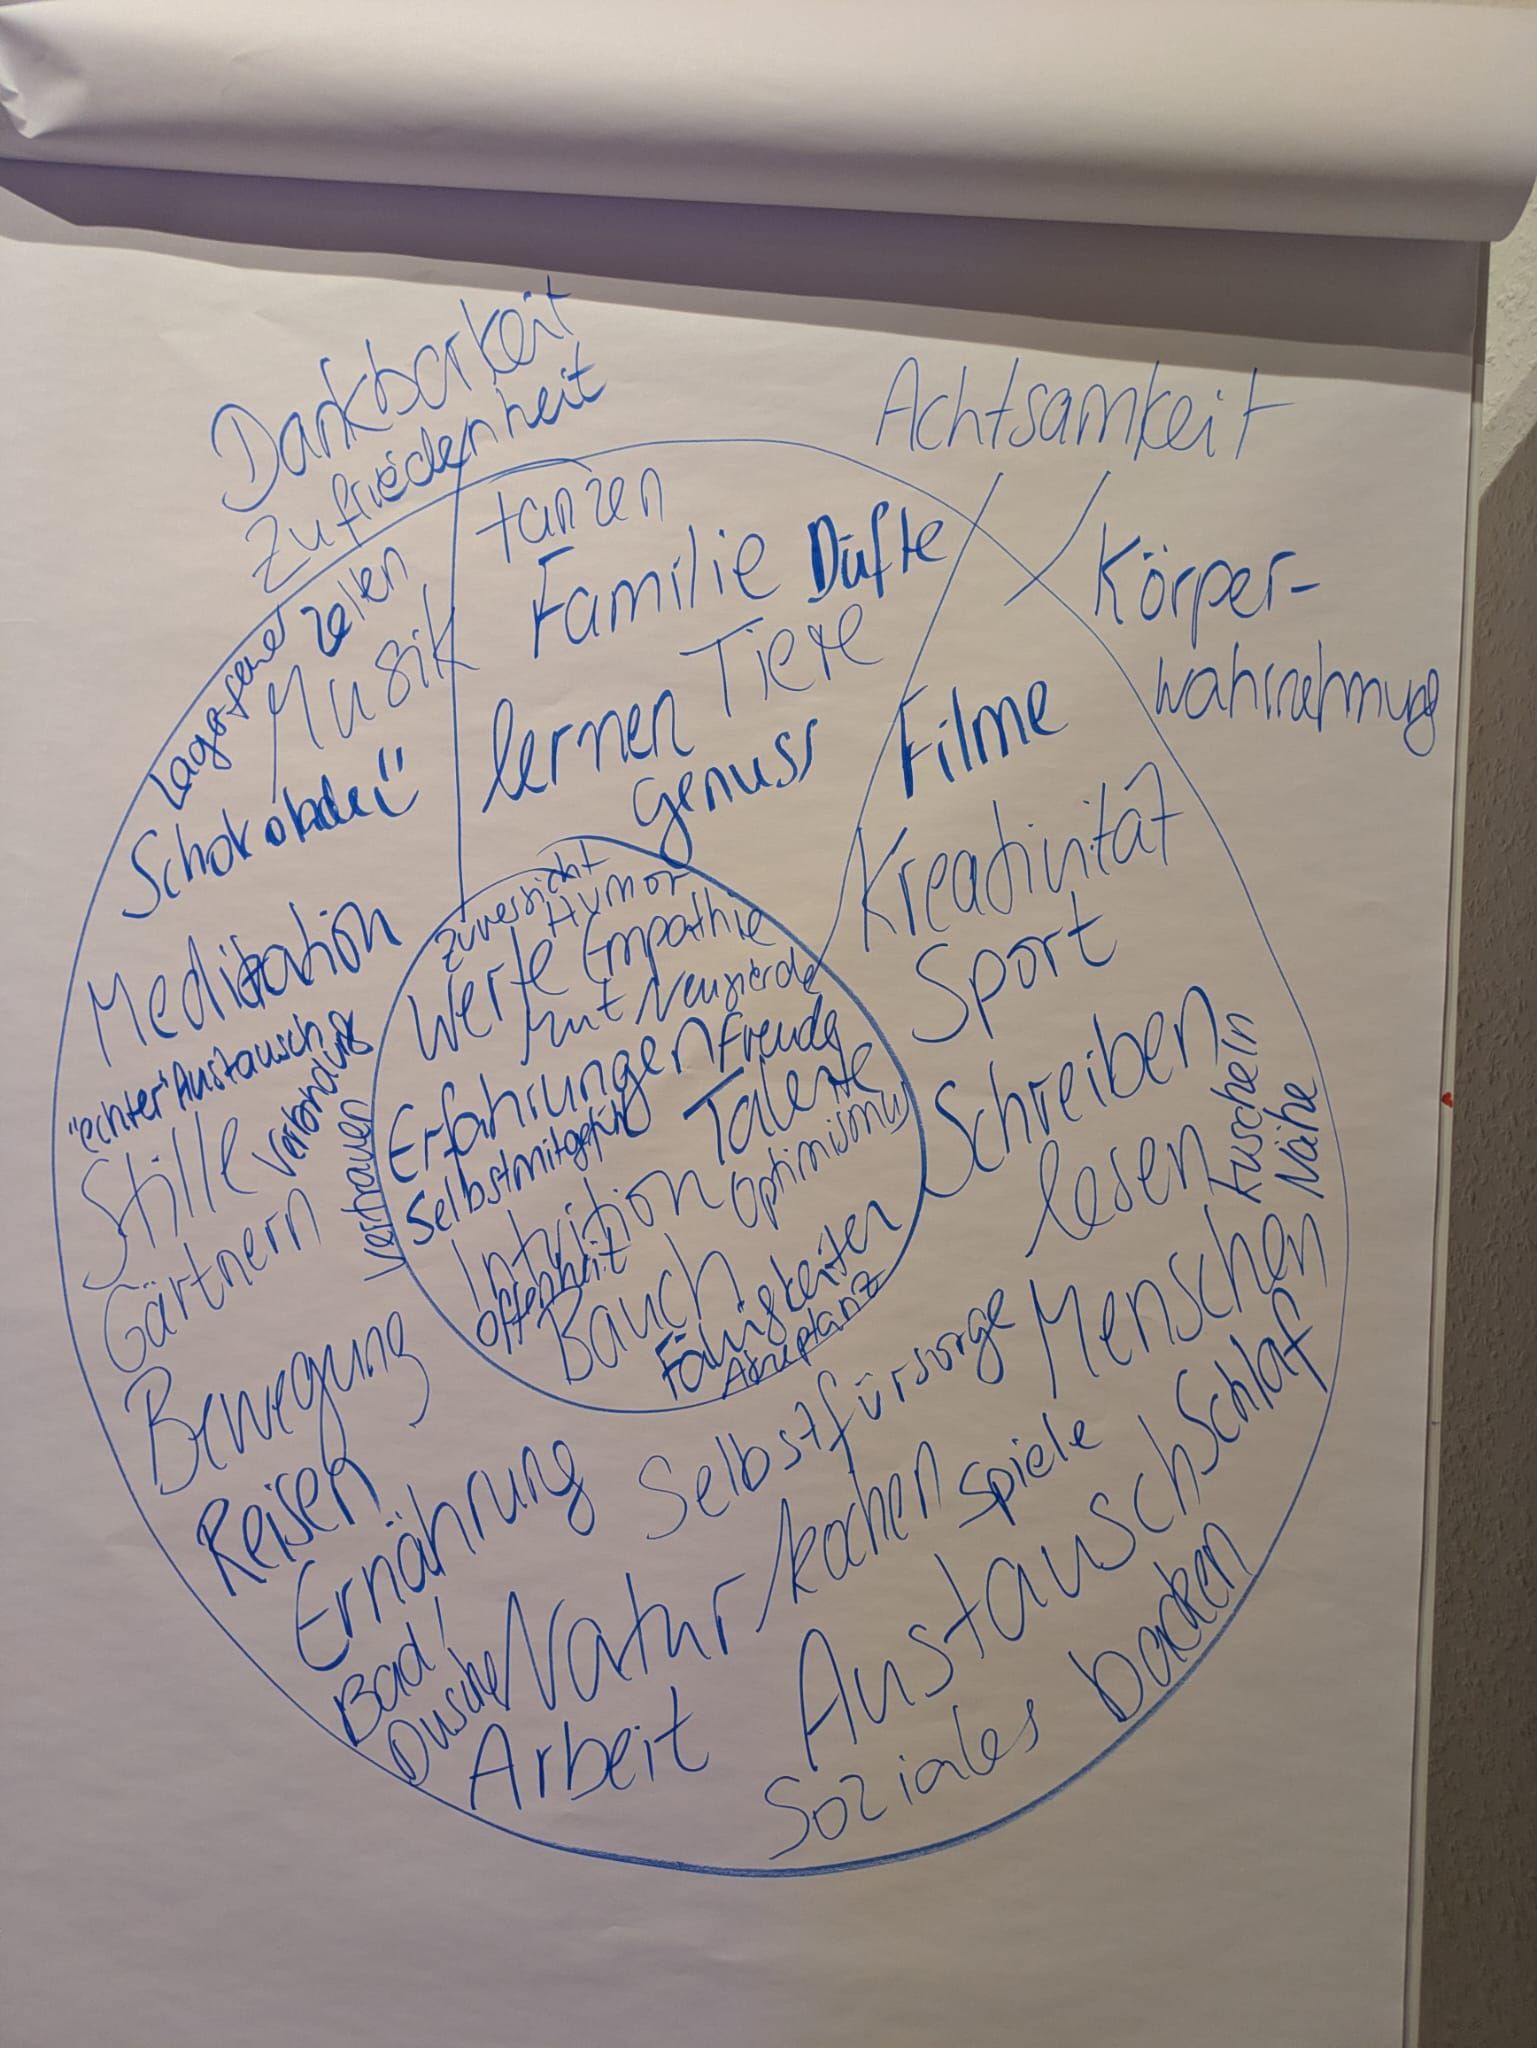 Dankbarkeit
Zufriedenheit
Achtsamkeit
Körper-
wahrnehmung
tanzen
Familie Düfte
Tiere
lernen
genuss
Lagerfeuer
zelten
Musik
Schokolade"
Filme
Kreativität
Sport
Schreiben
lesen
kuscheln
Nähe
Menschen
Schlaf
Meditation
"echter" Austausch
Verbindung
Stille
Vertrauen
Gärtnern
Bewegung
Reisen
Ernährung
Bad/
Dusche
Natur
Arbeit
Selbstfürsorge
kochen
spiele
Austausch
Soziales
backen
Zuversicht
Humor
Werte Empathie
Mut Neugierde
Erfahrungen Freude
Talente
Selbstmitgefühl
Optimismus
Intuition
Offenheit
Bauch
Fähigkeiten
Akzeptanz